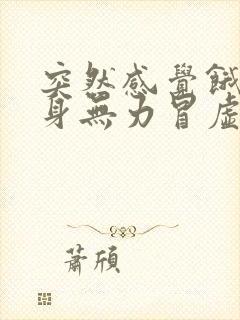 突然感覺餓
身無力冒虛
蕭頎